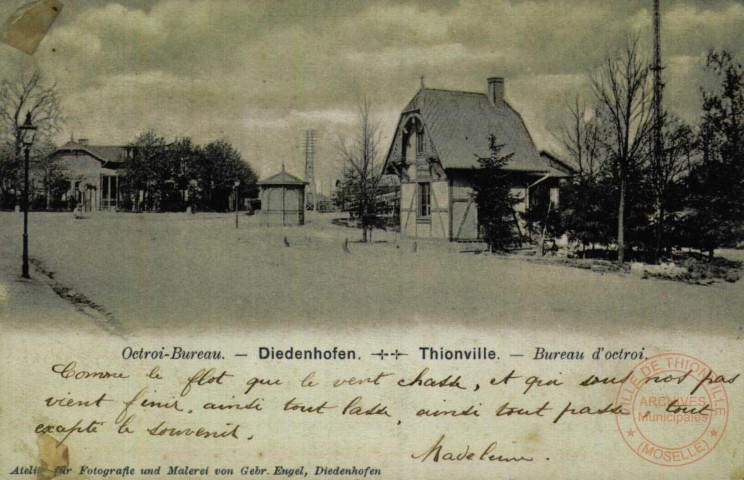 Octroi-Bureau. — Diedenhofen. -++- Thionville. — Bureau d'octroi.
Comme le flot que le vent chasse, et qui sous nos pas
vient finir, ainsi tout lasse, ainsi tout passe, tout
exapté le souvenir.
Madeleine.
Atelier für Fotografie und Malerei von Gebr. Engel, Diedenhofen
VILLE DE THIONVILLE
ARCHIVES
Municipales
(MOSELLE)